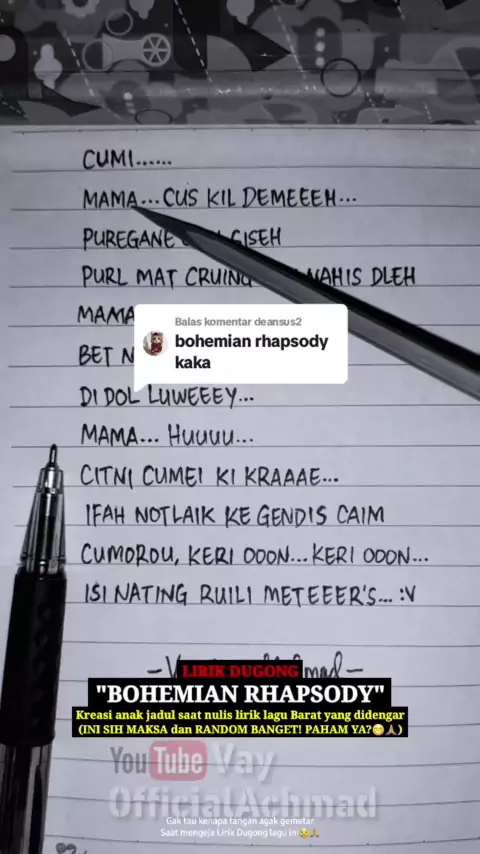 CUMI......
MAMA... CUS KIL DEMEEEH...
PUREGANE GISEH
PURL MAT CRUING NAHIS DLEH
MAMA
Balas komentar deansus2
bohemian rhapsody
kaka
BET
DI DOL LUWEEEY...
MAMA... HUUUU...
CITNI CUMEI KI KRAAAE...
IFAH NOTLAIK KE GENDIS CAIM
CUMOROU, KERI OOON... KERI OOON...
ISI NATING RUILI METEEER'S... :V
LIRIK DUGONG
"BOHEMIAN RHAPSODY"
Kreasi anak jadul saat nulis lirik lagu Barat yang didengar
(INI SIH MAKSA dan RANDOM BANGET! PAHAM YA?😁🙏)
YouTube Vay
OfficialAchmad
Gak tau kenapa tangan agak gemetar
Saat mengeja Lirik Dugong lagu ini😪🙏